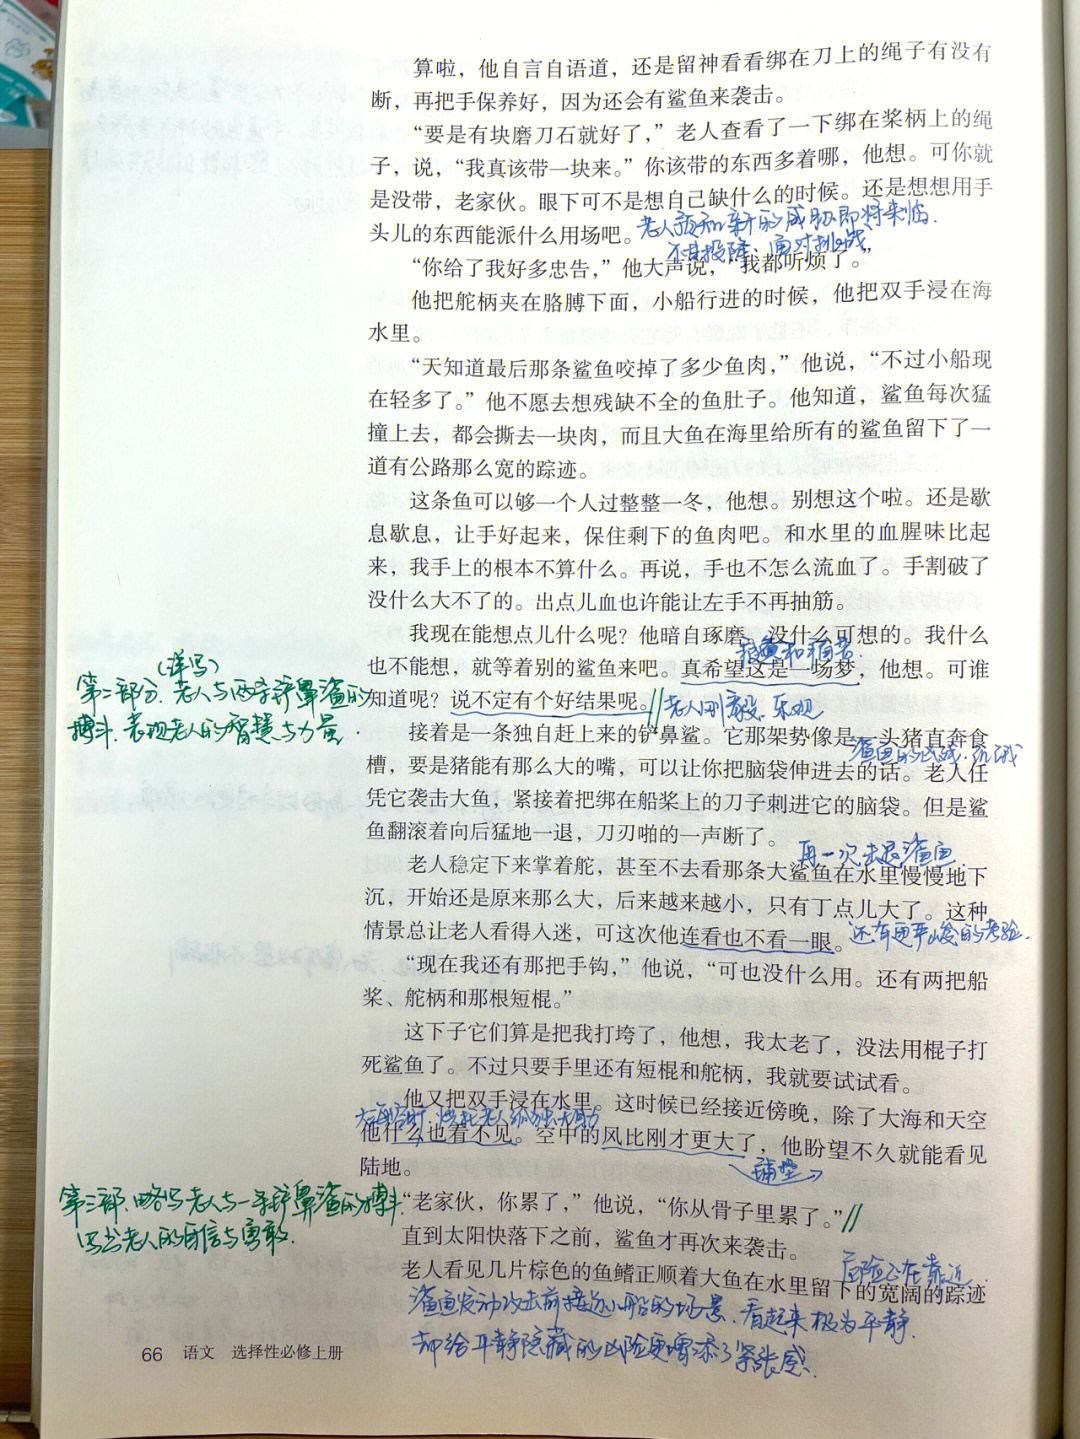 算啦，他自言自语道，还是留神看看绑在刀上的绳子有没有
断，再把手保养好，因为还会有鲨鱼来袭击。
“要是有块磨刀石就好了，”老人查看了一下绑在桨柄上的绳
子，说，“我真该带一块来。”你该带的东西多着哪，他想。可你就
是没带，老家伙。眼下可不是想自己缺什么的时候。还是想想用手
头儿的东西能派什么用场吧。
老人预知新的威胁即将来临.
面对挑战
“你给了我好多忠告，”他大声说，“我都听烦了。”
他把舵柄夹在胳膊下面，小船行进的时候，他把双手浸在海
水里。
“天知道最后那条鲨鱼咬掉了多少鱼肉，”他说，“不过小船现
在轻多了。”他不愿去想残缺不全的鱼肚子。他知道，鲨鱼每次猛
撞上去，都会撕去一块肉，而且大鱼在海里给所有的鲨鱼留下了一
道有公路那么宽的踪迹。
这条鱼可以够一个人过整整一冬，他想。别想这个啦。还是歇
息歇息，让手好起来，保住剩下的鱼肉吧。和水里的血腥味比起
来，我手上的根本不算什么。再说，手也不怎么流血了。手割破了
没什么大不了的。出点儿血也许能让左手不再抽筋。
我现在能想点儿什么呢？他暗自琢磨。没什么可想的。我什么
也不能想，就等着别的鲨鱼来吧。真希望这是一场梦，他想。可谁
知道呢？说不定有个好结果呢。
老人刚毅、乐观
（详写）
第二部分、老人与两条铲鼻鲨的
搏斗、表现老人的智慧与力量.
接着是一条独自赶上来的铲鼻鲨。它那架势像是一头猪直奔食
槽，要是猪能有那么大的嘴，可以让你把脑袋伸进去的话。老人任
凭它袭击大鱼，紧接着把绑在船桨上的刀子刺进它的脑袋。但是鲨
鱼翻滚着向后猛地一退，刀刃啪的一声断了。
再一次击退鲨鱼.
老人稳定下来掌着舵，甚至不去看那条大鲨鱼在水里慢慢地下
沉，开始还是原来那么大，后来越来越小，只有丁点儿大了。这种
情景总让老人看得入迷，可这次他连看也不看一眼。
还有更严峻的考验.
“现在我还有那把手钩，”他说，“可也没什么用。还有两把船
桨、舵柄和那根短棍。”
这下子它们算是把我打垮了，他想，我太老了，没法用棍子打
死鲨鱼了。不过只要手里还有短棍和舵柄，我就要试试看。
他又把双手浸在水里。这时候已经接近傍晚，除了大海和天空
他什么也看不见。空中的风比刚才更大了，他盼望不久就能看见
陆地。
铺垫
“老家伙，你累了，”他说，“你从骨子里累了。”
第三部、略写老人与一条铲鼻鲨的搏斗.
写出老人的自信与勇敢.
直到太阳快落下之前，鲨鱼才再次来袭击。
老人看见几片棕色的鱼鳍正顺着大鱼在水里留下的宽阔的踪迹
危险正在靠近.
鲨鱼发动攻击前接近小船的场景、看起来极为平静.
却给平静隐藏的凶险更增添了紧张感.
66 语文 选择性必修上册